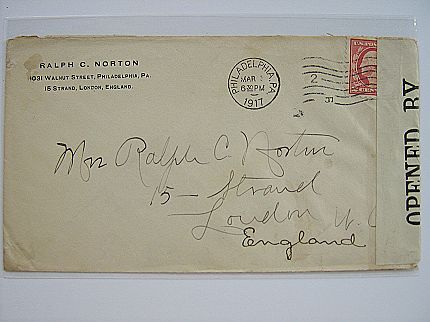 RALPH C. NORTON
1031 WALNUT STREET, PHILADELPHIA, PA.
15 STRAND, LONDON, ENGLAND.
PHILADELPHIA, PA.
MAR
6 30 PM
1917
2
U.S. POSTAGE
Mrs Ralph C. Norton
15 - Strand
London W. C
England
OPENED BY